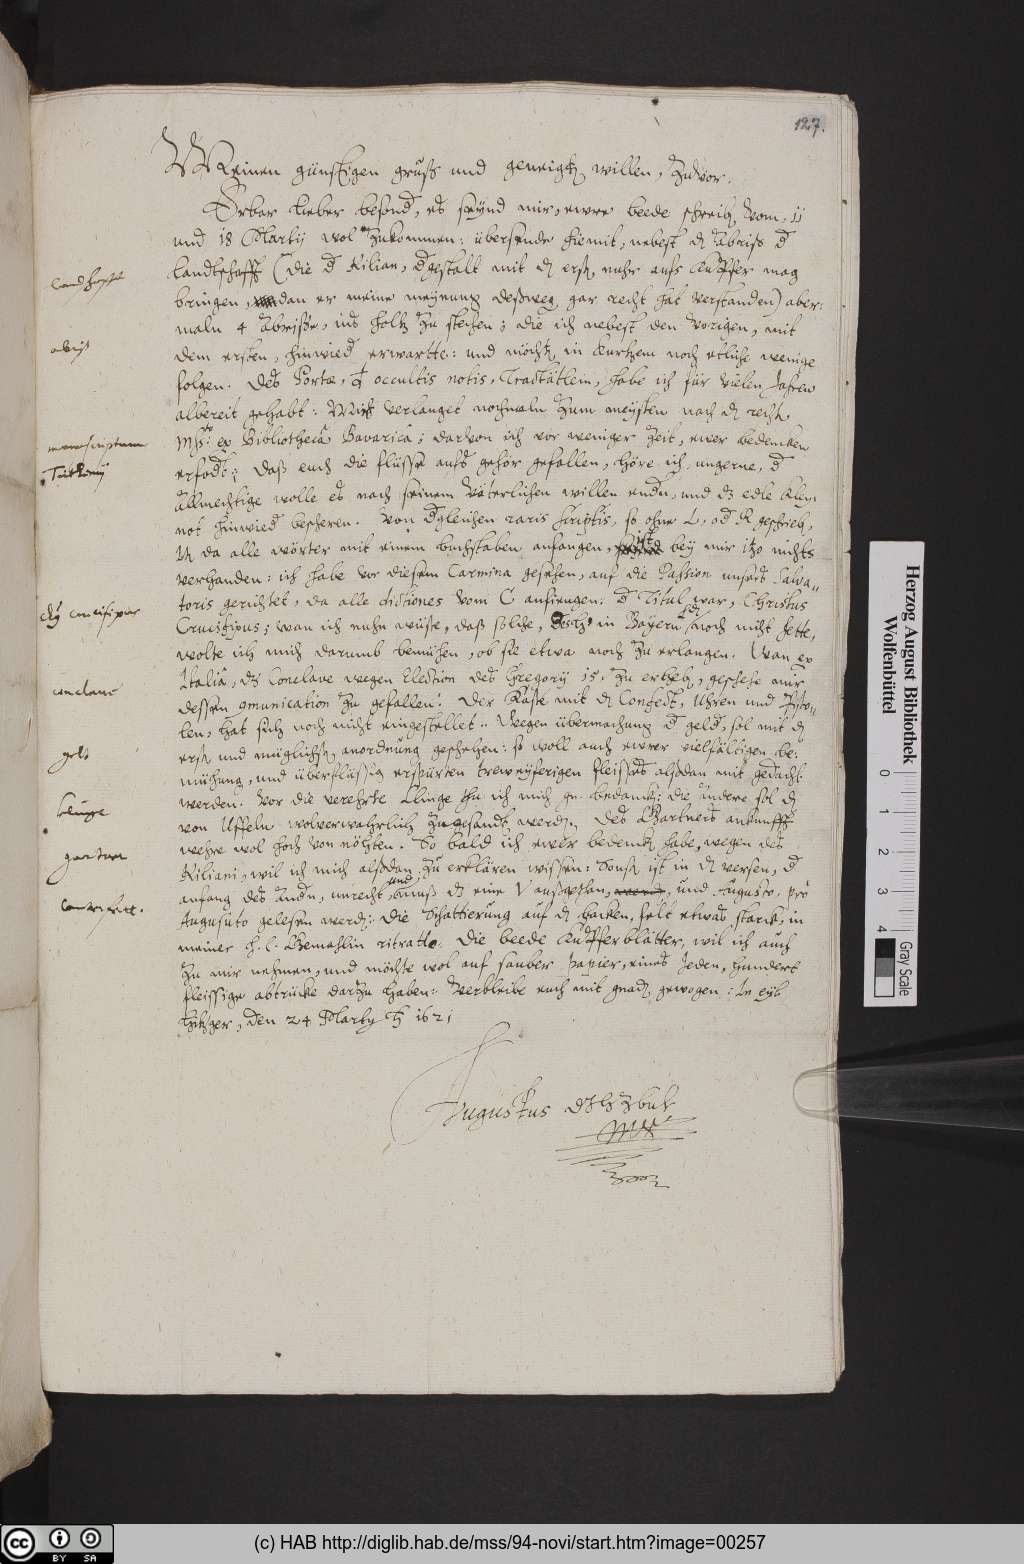 127.
Meinen günstigen gruß und geneigten willen, zuvor.
Erbar lieber besonder, es seynd mir, ewre beede schreiben vom, 11
und 18 Martij wol zukommen: übersende hiemit, nebest dem Abriß der
landtschafft (die der Kilian, dergestalt mit dem ersten nuhr aufs Kupffer mag
landschafft
bringen, dan er meine meynung deßwegen gar recht hat verstanden) aber-
maln 4 Abrisse, ins holtz zu stechen; die ich nebest den vorigen, mit
abriß
dem ersten, hinwieder erwartte: und möchten in kurtzem noch etliche wenige
folgen. Des Portæ, de occultis notis, Tractätlein, habe ich für vielen Jahren
albereit gehabt: Mich verlanget nochmaln zum meysten nach dem rechten
Mss.to ex Bibliotheca Bavarica; darvon ich vor weniger zeit, ewer bedencken
manuscriptum
Trithemij
erfodert: Daß euch die flüsse aufs gehör gefallen, höre ich, ungerne, der
Allmechtige wolle es nach seinem Väterlichen willen enden, und das edle Kley-
not hinwieder bescheren. Von dergleichen raris scriptis, so ohne L, oder R geschrieben,
da alle wörter mit einem buchstaben anfangen, ist bey mir itzo nichts
verhanden: ich habe vor diesem Carmina gesehen, auf die Passion unsers Salva-
toris gerichtet, da alle dictiones vom C anfiengen: der Titul war, Christus
Crucifixus; wan ich nuhn wüste, daß solche, in Bayern noch nicht hette,
wolte ich mich darumb bemühen, ob sie etwa noch zu erlangen. Wan ex
Italiâ, das Conclave wegen Election des Gregorij 15, zu erheben, geschehe mir
conclave
dessen communication zu gefallen: Der Kaste mit dem Confect, Uhren und Pisto-
len, hat sich noch nicht eingestellet: Wegen übermachung der gelder, sol mit dem
gelt
ersten und müglichste anordnung geschehen: so woll auch ewrer vielfältigen be-
mühung, und überflüssig erspürten trewyferigen fleisses alsdan mit gedacht
werden. Vor die verehrte Klinge thu ich mich gn. bedancken: die andere sol dem
klinge
von Uffeln wolverwahrlich zugesandt werden. Des Gartners ankunfft
were wol hoch von nöhten. So bald ich ewer bedencken habe, wegen des
gartner
Kiliani, wil ich mich alsdan zu erklären wissen: Sonst ist in den versen, der
anfang des andern, unrecht, und muß das eine V außgethan, und Augusto, pro
Augusuto gelesen werden: Die Schattierung auf dem backen, felt etwas starck, in
meiner h. l. Gemahlin ritratto. Die beede Kupfferblätter, wil ich auch
zu mir nehmen, und möchte wol auf sauber papier, eines Jeden, hundert
fleissige abtrücke darzu haben: Verbleibe euch mit gnaden gewogen: In eyl
Hitzger, den 24 Martij 1621
Augustus
Herzog August Bibliothek
Wolfenbüttel
0 1 2 3 4
Gray Scale
BY SA
(c) HAB http://diglib.hab.de/mss/94-novi/start.htm?image=00257